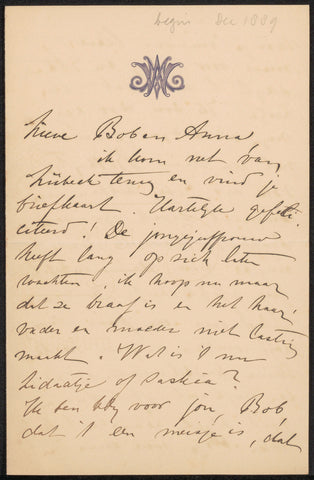 begin Dec 1889
Lieve Bob en Anna
ik kom net van
Lübeck terug en vind je
briefkaart. Hartelijk gefeli-
citeerd! De jonge juffrouw
heeft lang op zich laten
wachten, ik hoop nu maar
dat ze braaf is en het haar
vader en moeder niet lastig
maakt. Wat is 't nu
Lidaatje of Saskia?
Ik ben blij voor jou, Bob,
dat 't een meisje is, dat